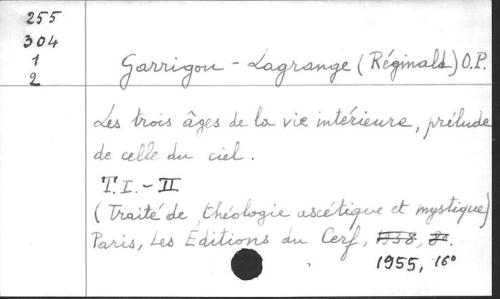 255
304
1
2
Garrigou - Lagrange (Réginald) O.P.
Les trois âges de la vie intérieure, prélude
de celle du ciel.
T. I. - II
(Traité de théologie ascétique et mystique)
Paris, Les Editions du Cerf, 1938,
1955, 16°